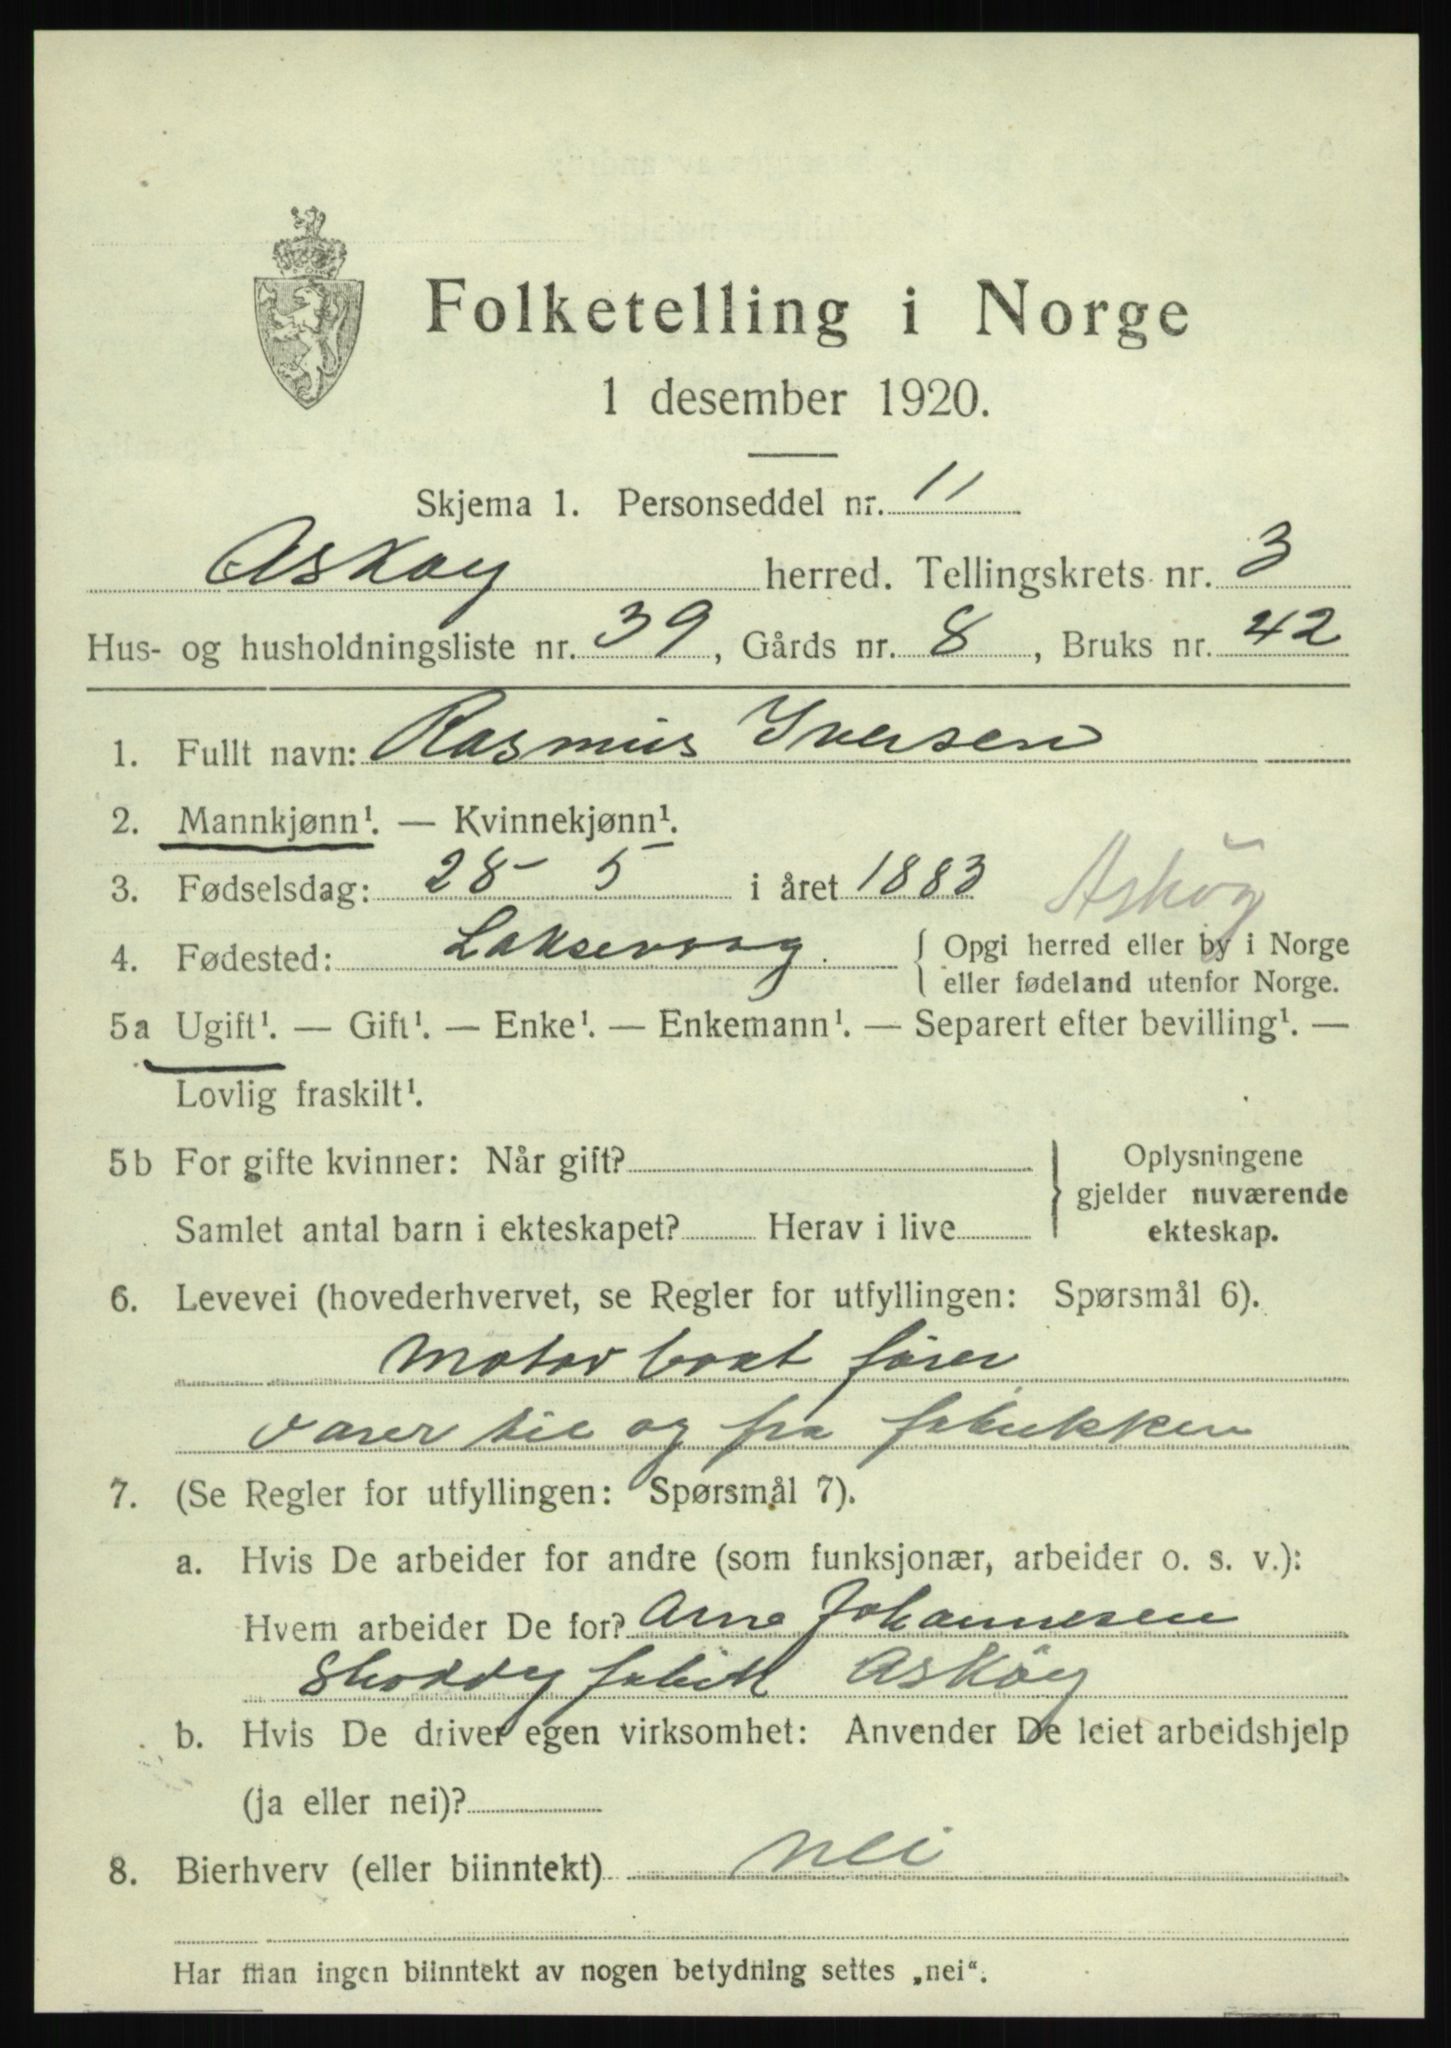 Folketelling i Norge
1 desember 1920.
Skjema 1. Personseddel nr. 11
Askøy herred. Tellingskrets nr. 3
Hus- og husholdningsliste nr. 39, Gårds nr. 8, Bruks nr. 42
1. Fullt navn: Rasmus Iversen
2. Mannkjønn¹. — Kvinnekjønn¹.
3. Fødselsdag: 28 - 5 - i året 1883 Askøy
4. Fødested: Laksevaag. { Opgi herred eller by i Norge
eller fødeland utenfor Norge.
5a Ugift¹. — Gift¹. — Enke¹. — Enkemann¹. — Separert efter bevilling¹. —
Lovlig fraskilt¹.
5b For gifte kvinner: Når gift? Oplysningene
gjelder nuværende
Samlet antal barn i ekteskapet? Herav i live ekteskap.
6. Levevei (hovederhvervet, se Regler for utfyllingen: Spørsmål 6).
Motorbaat fører
varer til og fra fabrikken
7. (Se Regler for utfyllingen: Spørsmål 7).
a. Hvis De arbeider for andre (som funksjonær, arbeider o. s. v.):
Hvem arbeider De for? Arne Johannesen
Shoddyfabrik Askøy
b. Hvis De driver egen virksomhet: Anvender De leiet arbeidshjelp
(ja eller nei)?
8. Bierhverv (eller biinntekt) nei
Har man ingen biinntekt av nogen betydning settes „nei“.